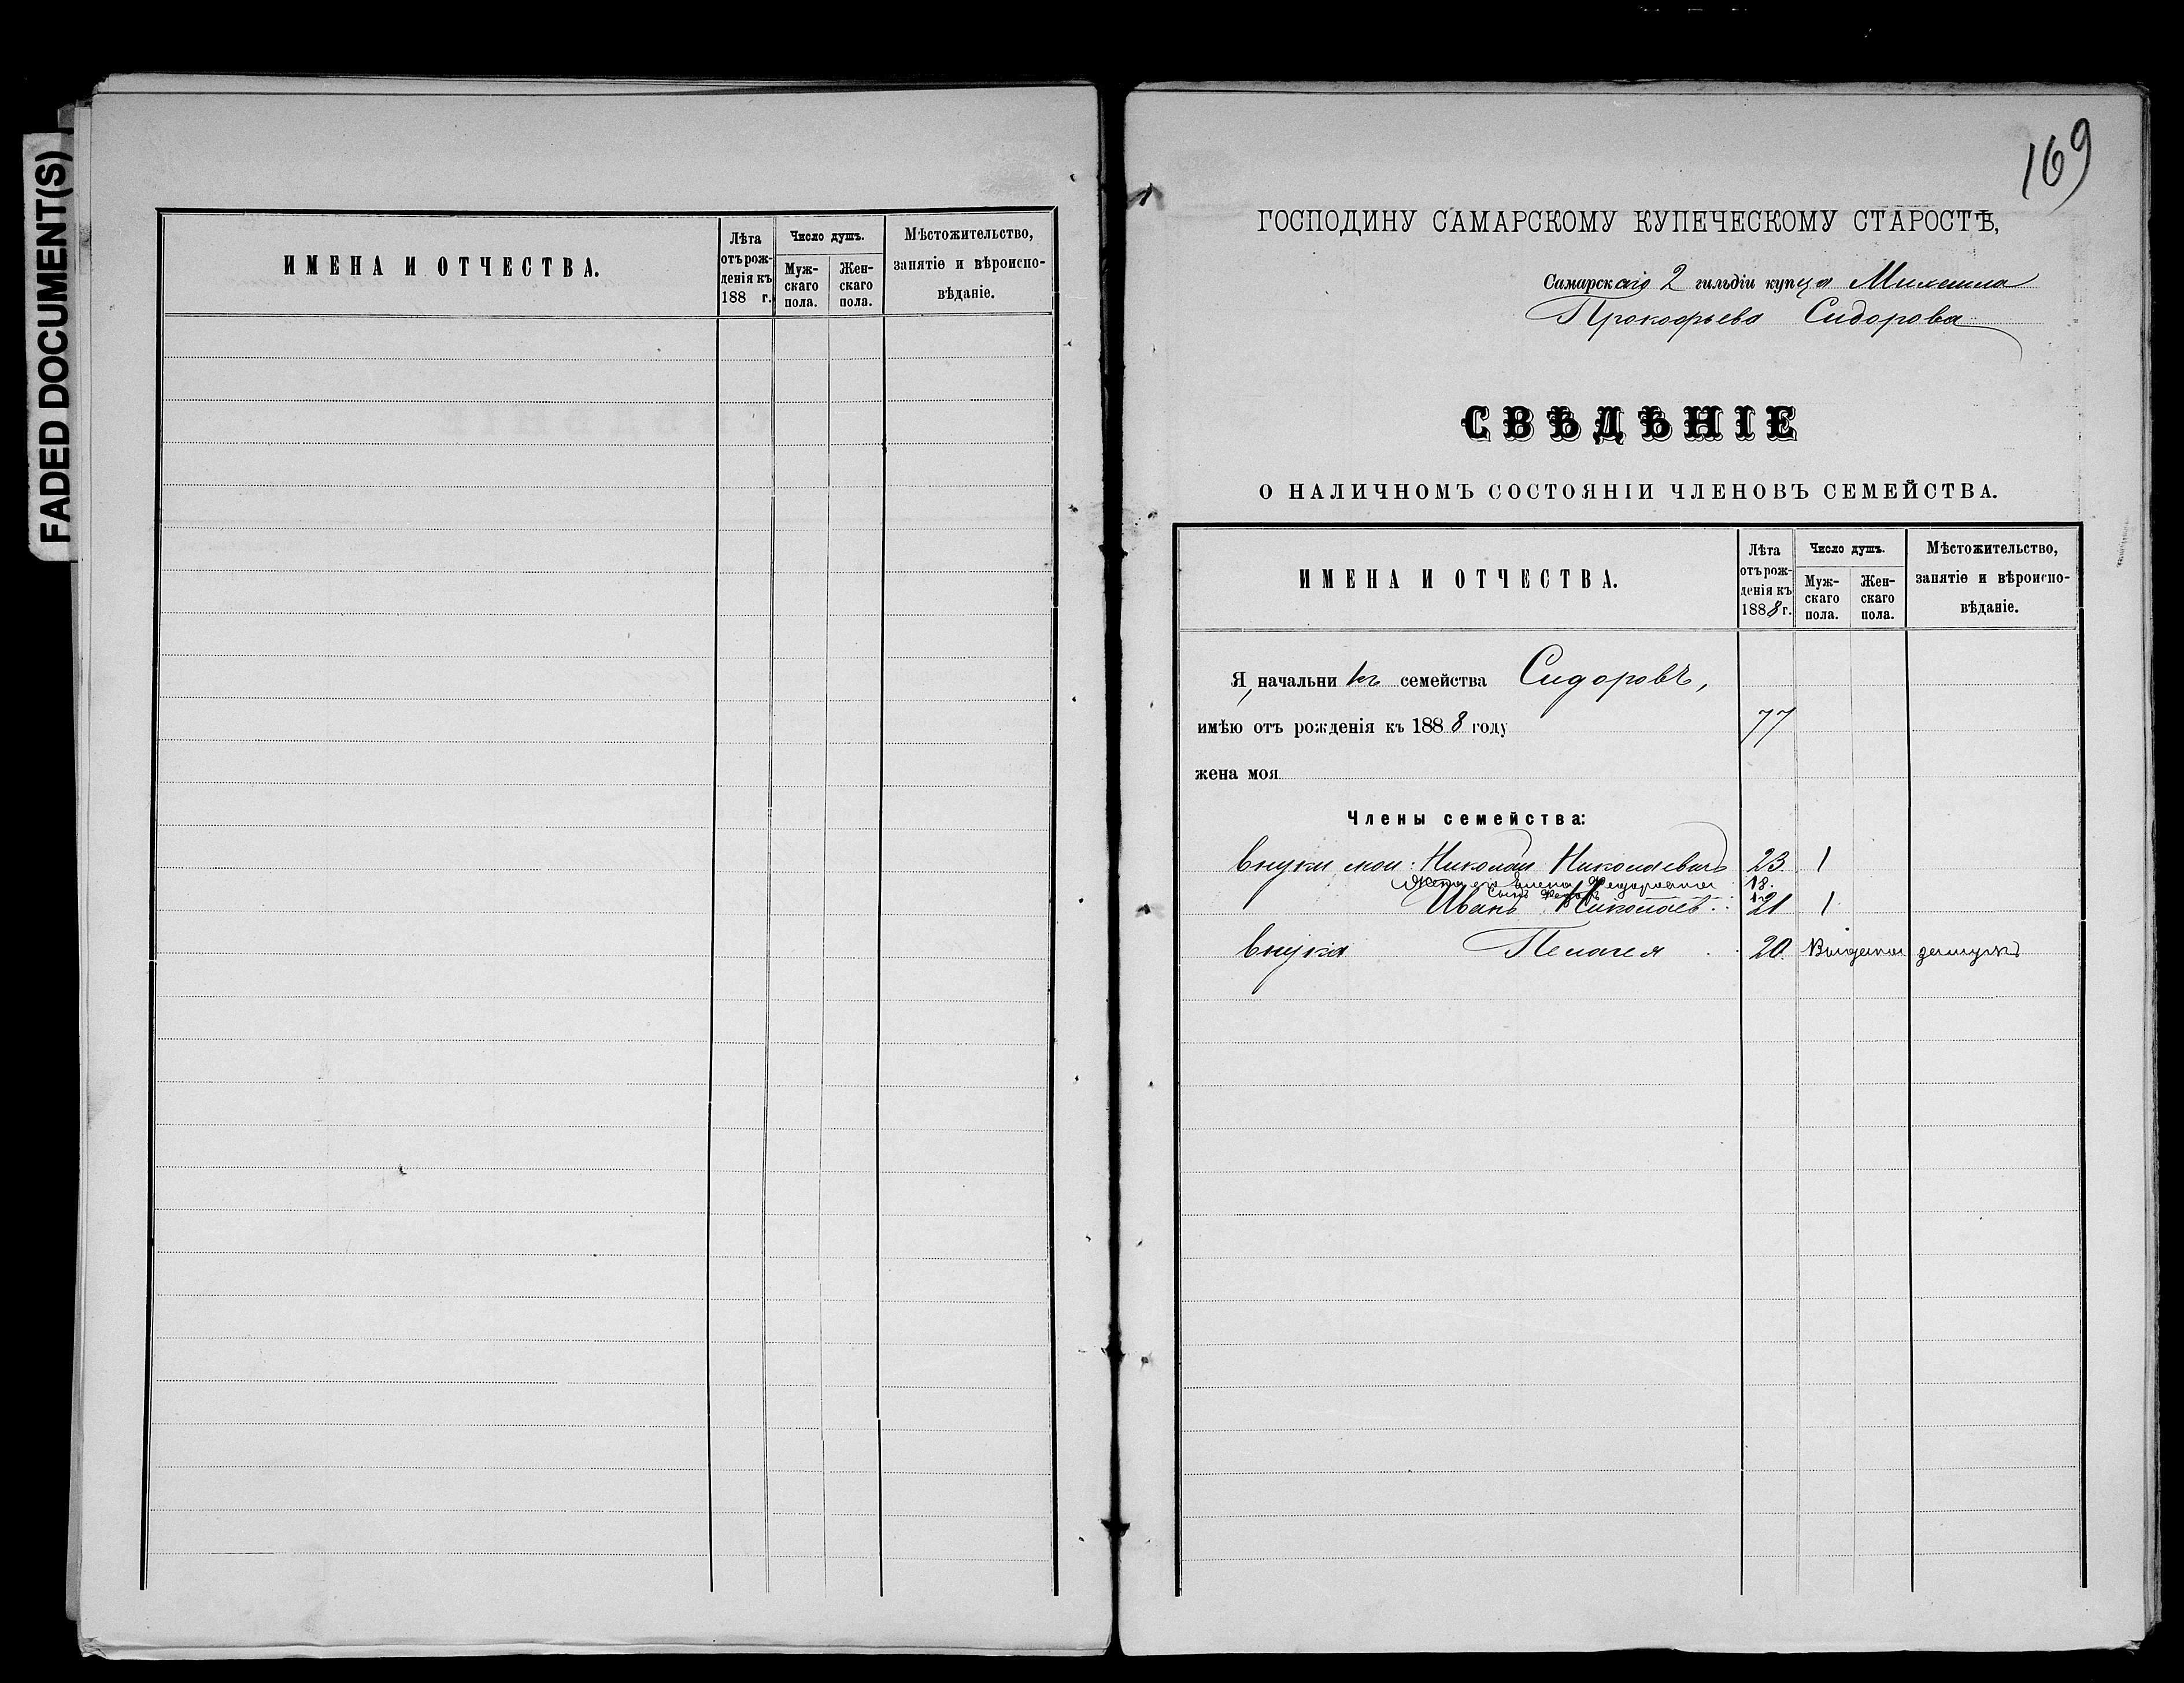 FADED DOCUMENT(S)
ИМЕНА И ОТЧЕСТВА.
Лѣта отъ рож-денія къ 188 г.
Число душъ.
Муж-скаго пола.
Жен-скаго пола.
Мѣстожительство, занятіе и вѣроиспо-вѣданіе.
169
ГОСПОДИНУ САМАРСКОМУ КУПЕЧЕСКОМУ СТАРОСТѢ,
Самарскаго 2 гильдіи купца
Прокофьева Сидорова
СВѢДѢНІЕ
О НАЛИЧНОМЪ СОСТОЯНІИ ЧЛЕНОВЪ СЕМЕЙСТВА.
ИМЕНА И ОТЧЕСТВА.
Лѣта отъ рож-денія къ 1888 г.
Число душъ.
Муж-скаго пола.
Жен-скаго пола.
Мѣстожительство, занятіе и вѣроиспо-вѣданіе.
Я, начальникъ семейства Сидоровъ,
имѣю отъ рожденія къ 1888 году 77
жена моя
Члены семейства:
внуки мои: Николай Николаевъ 23. 1
жена его Елена Федоровна 18.
Сынъ
Иванъ Николаевъ 21 1
внука Пелагея 20. Выдана замужъ